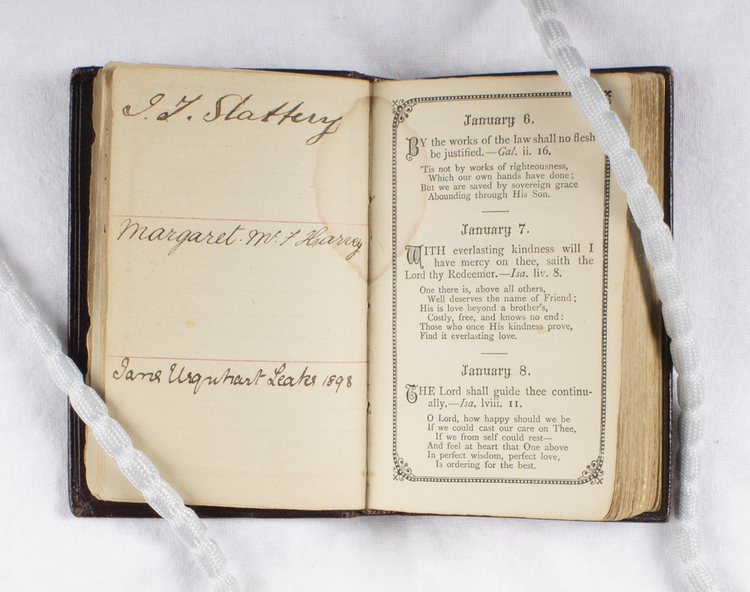 J. J. Slattery
Margaret. Mc. J Harvey
Jane Urquhart Leake 1898
January 6.
BY the works of the law shall no flesh
be justified.—Gal. ii. 16.
'Tis not by works of righteousness,
Which our own hands have done;
But we are saved by sovereign grace
Abounding through His Son.
January 7.
WITH everlasting kindness will I
have mercy on thee, saith the
Lord thy Redeemer.—Isa. liv. 8.
One there is, above all others,
Well deserves the name of Friend;
His is love beyond a brother's,
Costly, free, and knows no end:
Those who once His kindness prove,
Find it everlasting love.
January 8.
THE Lord shall guide thee continu-
ally.—Isa. lviii. 11.
O Lord, how happy should we be
If we could cast our care on Thee,
If we from self could rest—
And feel at heart that One above
In perfect wisdom, perfect love,
Is ordering for the best.